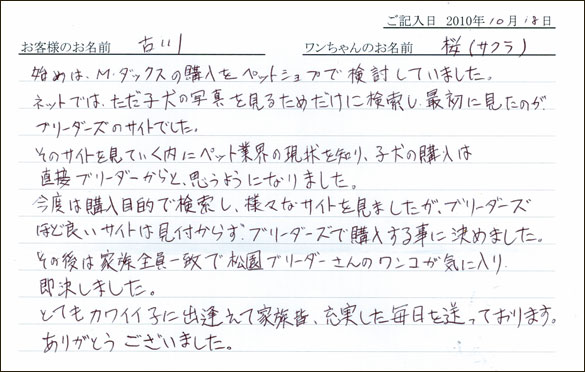 ご記入日 2010年10月18日
お客様のお名前 古川 ワンちゃんのお名前 桜(サクラ)
始めは、M.ダックスの購入をペットショプで検討していました。
ネットでは、ただ子犬の写真を見るためだけに検索し、最初に見たのが、
ブリーダーズのサイトでした。
そのサイトを見ていく内にペット業界の現状を知り、子犬の購入は
直接ブリーダーからと、思うようになりました。
今度は購入目的で検索し、様々なサイトを見ましたが、ブリーダーズ
ほど良いサイトは見付からず、ブリーダーズで購入する事に決めました。
その後は家族全員一致で松園ブリーダーさんのワンコが気に入り
即決しました。
とてもカワイイ子に出逢えて家族皆、充実した毎日を送っております。
ありがとうございました。